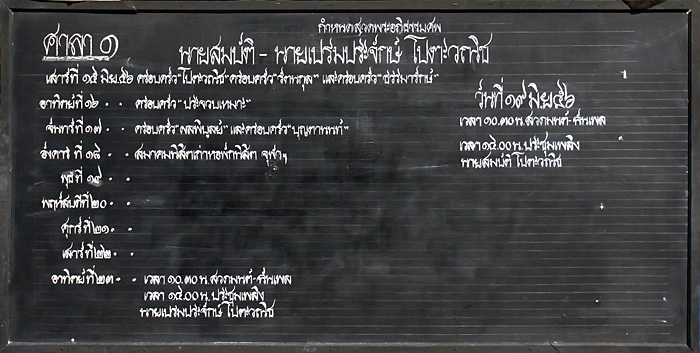 กำหนดสวดพระอภิธรรมศพ
ศาลา ๑
นายสมบัติ - นายเปรมประจักษ์ โปตะวณิช
เสาร์ที่ ๑๕ มิย.๕๖ ครอบครัว "โปตะวณิช" ครอบครัว และครอบครัว
อาทิตย์ที่ ๑๖ " " ครอบครัว
จันทร์ที่ ๑๗ " " ครอบครัว "ผลพิบูลย์" และครอบครัว "บุญตานนท์"
อังคาร ที่ ๑๘ " " สมาคมนิสิตเก่าหอพักนิสิต จุฬาฯ
พุธที่ ๑๙ " "
พฤหัสบดีที่ ๒๐ " "
ศุกร์ที่ ๒๑ " "
เสาร์ที่ ๒๒ " "
อาทิตย์ที่ ๒๓ " " เวลา ๑๐.๓๐ น. สวดมนต์-ฉันเพล
เวลา ๑๔.๐๐ น. ประชุมเพลิง
นายเปรมประจักษ์ โปตะวณิช
วันที่ ๑๙ มิย ๕๖
เวลา ๑๐.๓๐ น. สวดมนต์-ฉันเพล
เวลา ๑๔.๐๐ น. ประชุมเพลิง
นายสมบัติ โปตะวณิช